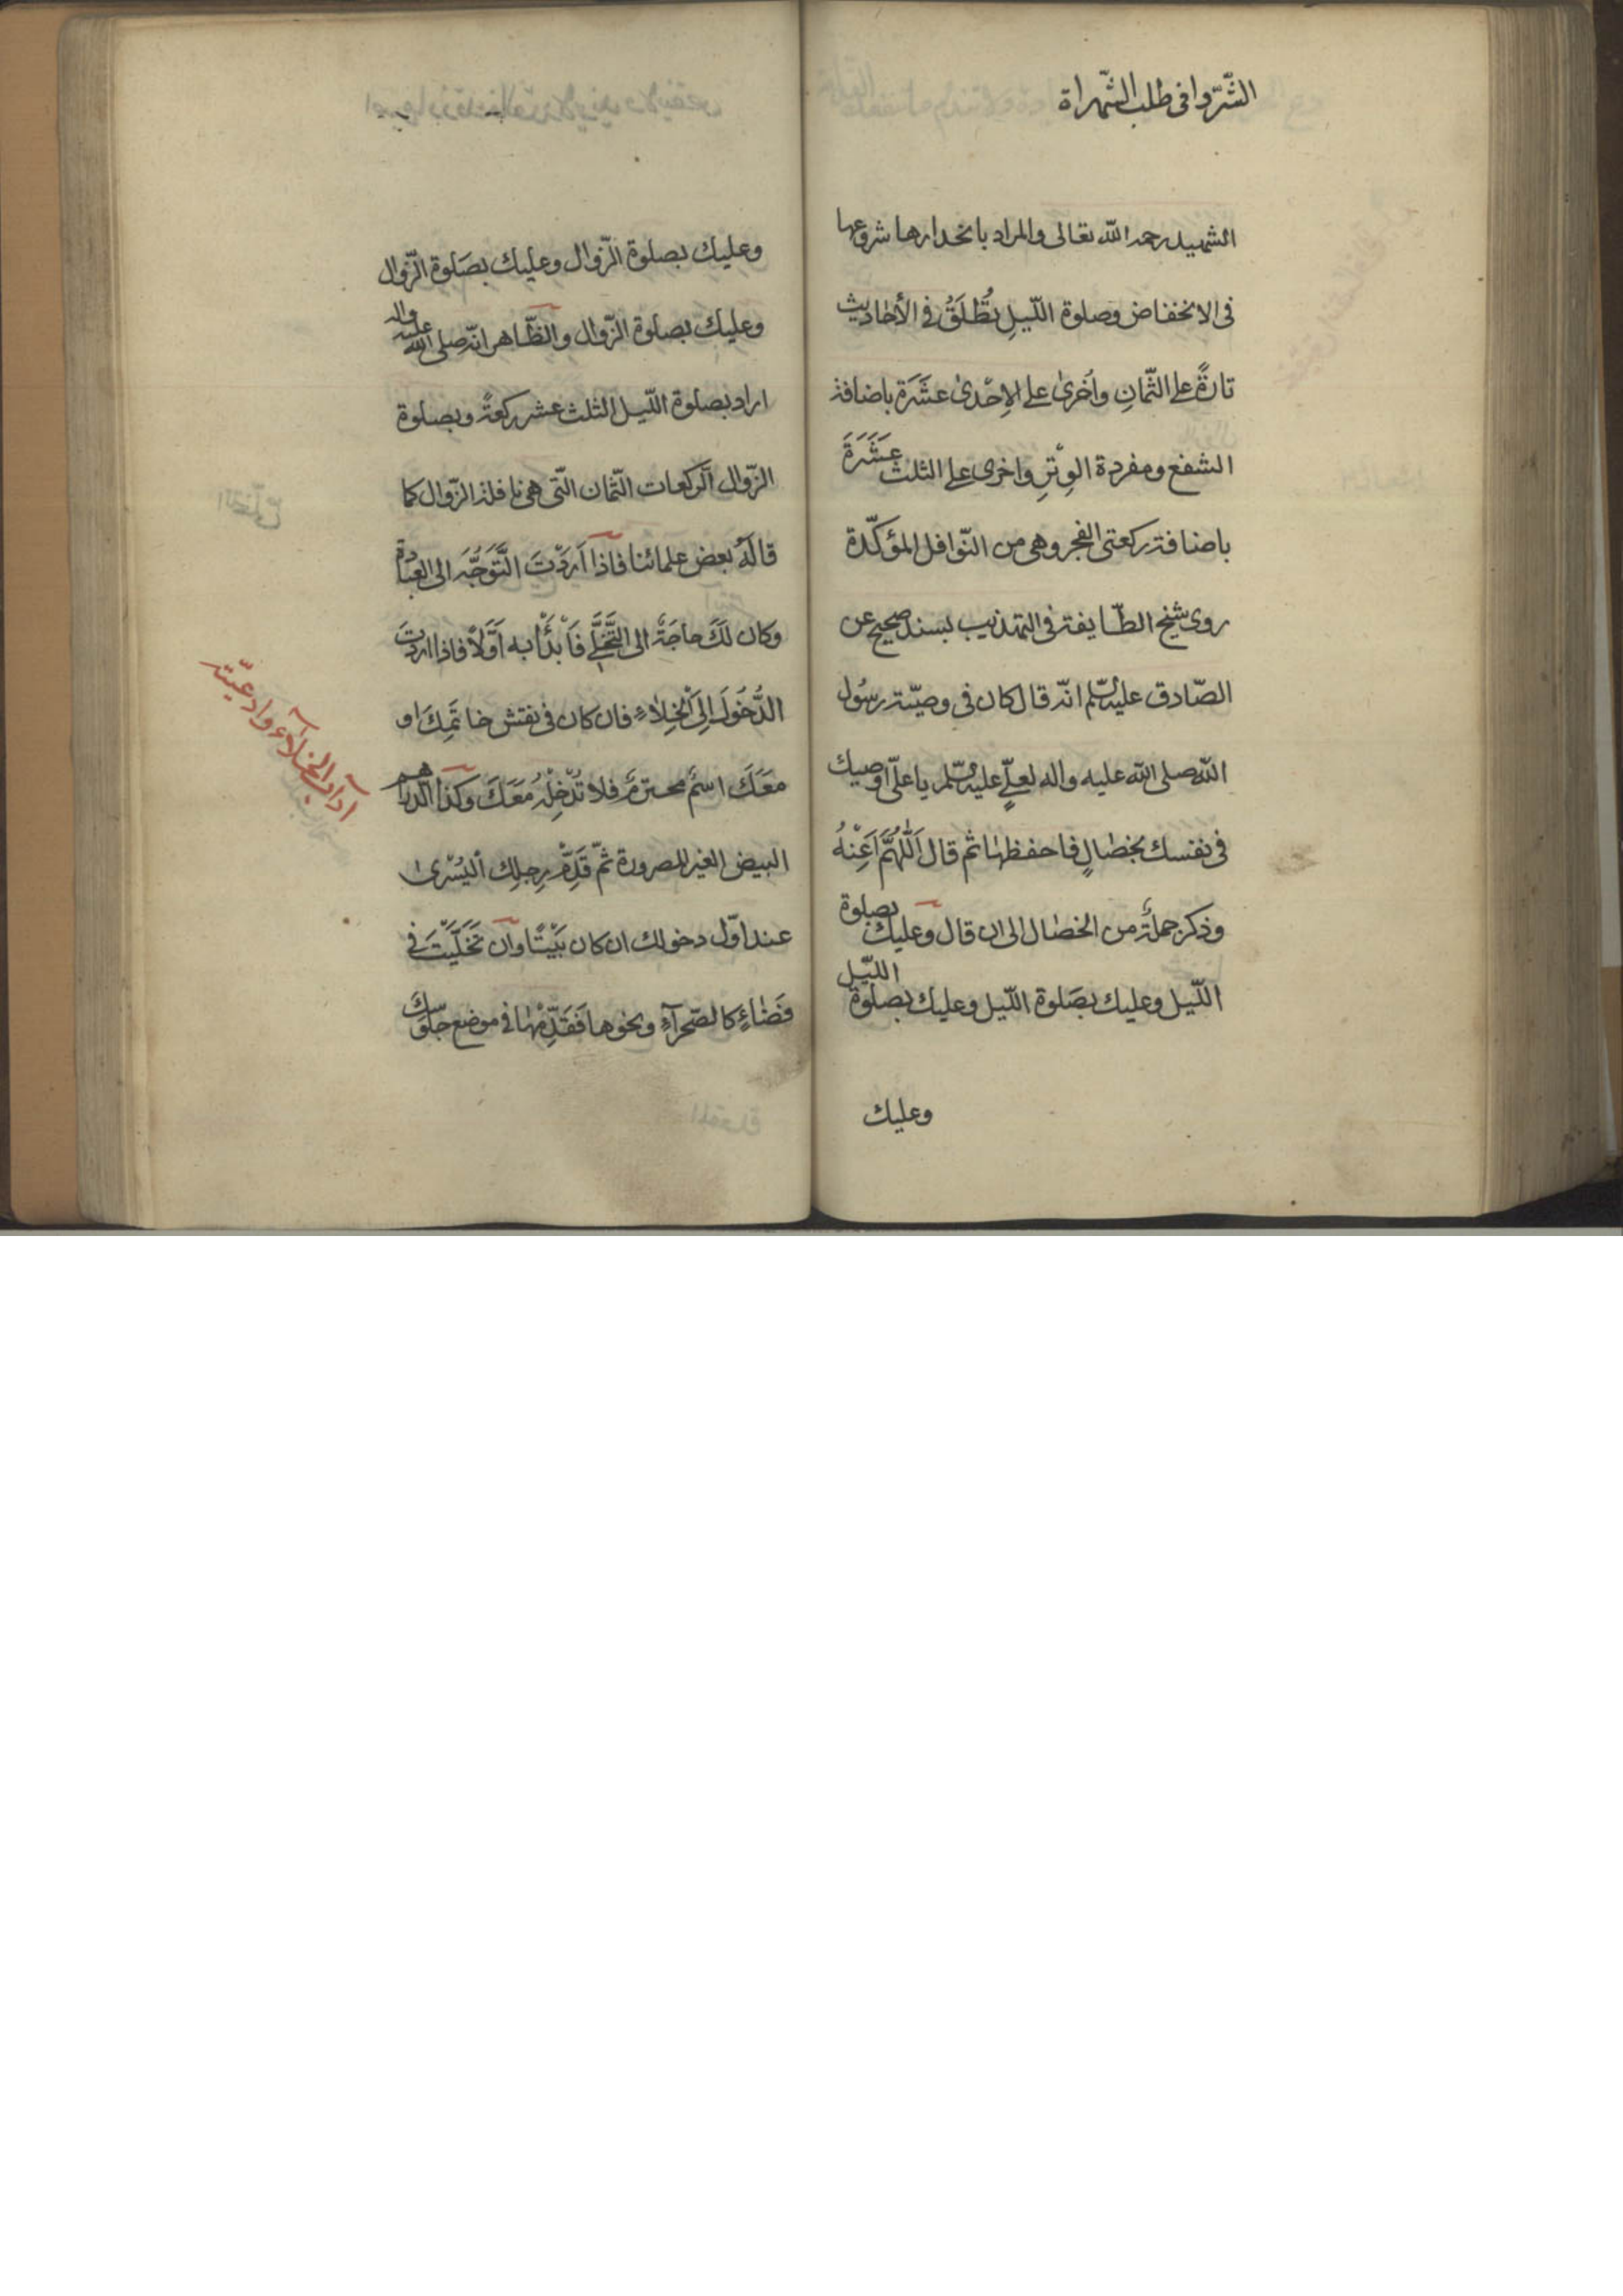 الشّرّ وافى طلب الشّهراة
الشهيد رحمه الله تعالى والمراد بانحدارها شروعها
فى الانخفاض وصلوة اللّيلِ تُطْلَقُ فى الأحاديث
تارةً على الثّمانِ واُخرىٰ على الاِحْدىٰ عشَرَة باضافة
الشفع ومفردة الوِتْرِ واخرى على الثلث عَشَرَةَ
باضافة ركعتى الفجر وهى من النّوافل المؤكّدة
روى شيخ الطّايفة فى التهذيب بسند صحيح عن
الصّادق عليه السّلم انّه قال كان فى وصيّة رسُول
اللّه صلى الله عليه واله لعلىٍّ عليه السّلم يا علىّ اوصيك
فى نفسك بخصٰالٍ فاحفظهٰا ثم قال اَللّٰهُمَّ اَعِنْهُ
وذكر جملةً من الخصٰال الى ان قال وعليك بصلوة
اللّيل وعليك بصَلوة اللّيل وعليك بصلوة اللّيل
وعليك
وعليك بصلوة الزّوال وعليك بصَلوة الزّوال
وعليك بصلوة الزّوال والظّاهر انّه صلى الله عليه واله
اراد بصلوة اللّيل الثلث عشر ركعةً وبصلوة
الزّوال الركعات الثّمان الّتى هى نافلة الزّوال كما
قالَهُ بعض علمائنا فاذا اَرَدْتَ التَّوَجُّهَ الى العبٰادة
وكان لَكَ حاجَةٌ الى التَّخَلّى فَابْدَأْ به اَوّلاً فاذا اردتَ
الدُّخُولَ اِلىَ الْخلاءِ فان كان فى نقش خاتَمِكَ او
معَكَ اسمٌ محترمٌ فلا تُدْخِلْهُ معَكَ وكذا الدّراهم
البيض الغير المصرورة ثمّ قَدِّمْ رِجلك اليُسْرىٰ
عند اوّل دخولك ان كان بَيْتًا وان تخَلَّيْتَ فى
فضٰاءٍ كالصّحراءِ ونحوها فَقَدِّمْهٰا فى موضع جلوسكَ
آداب الخلآء وادعيته